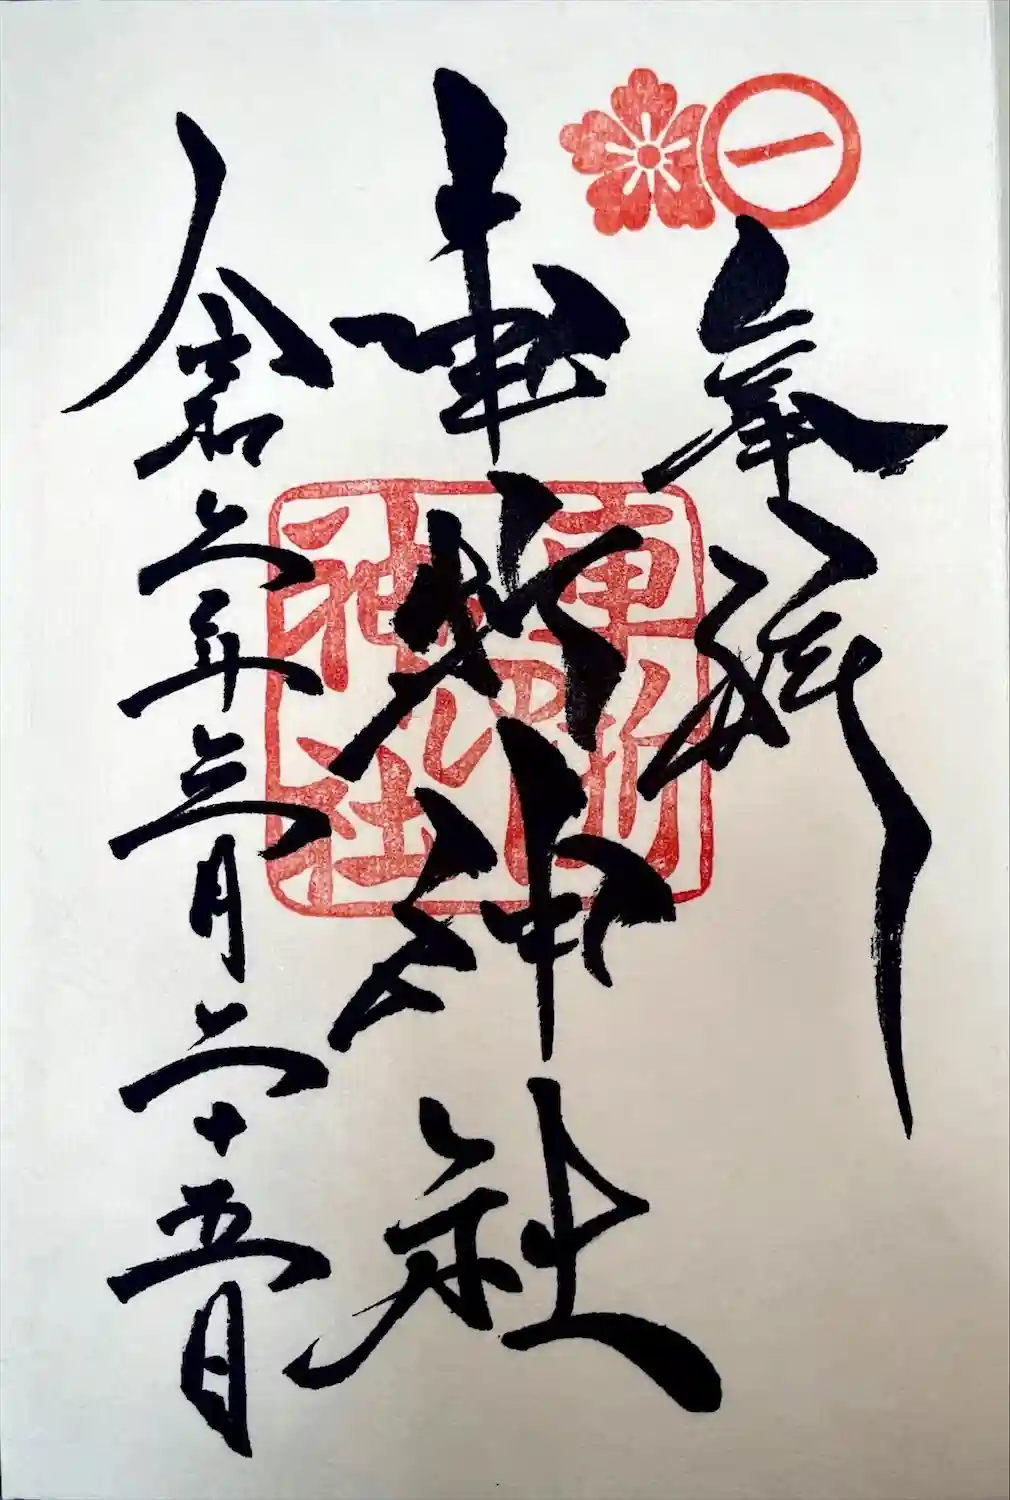 一
奉拝
車折神社
車折
神社
令和六年三月二十五日